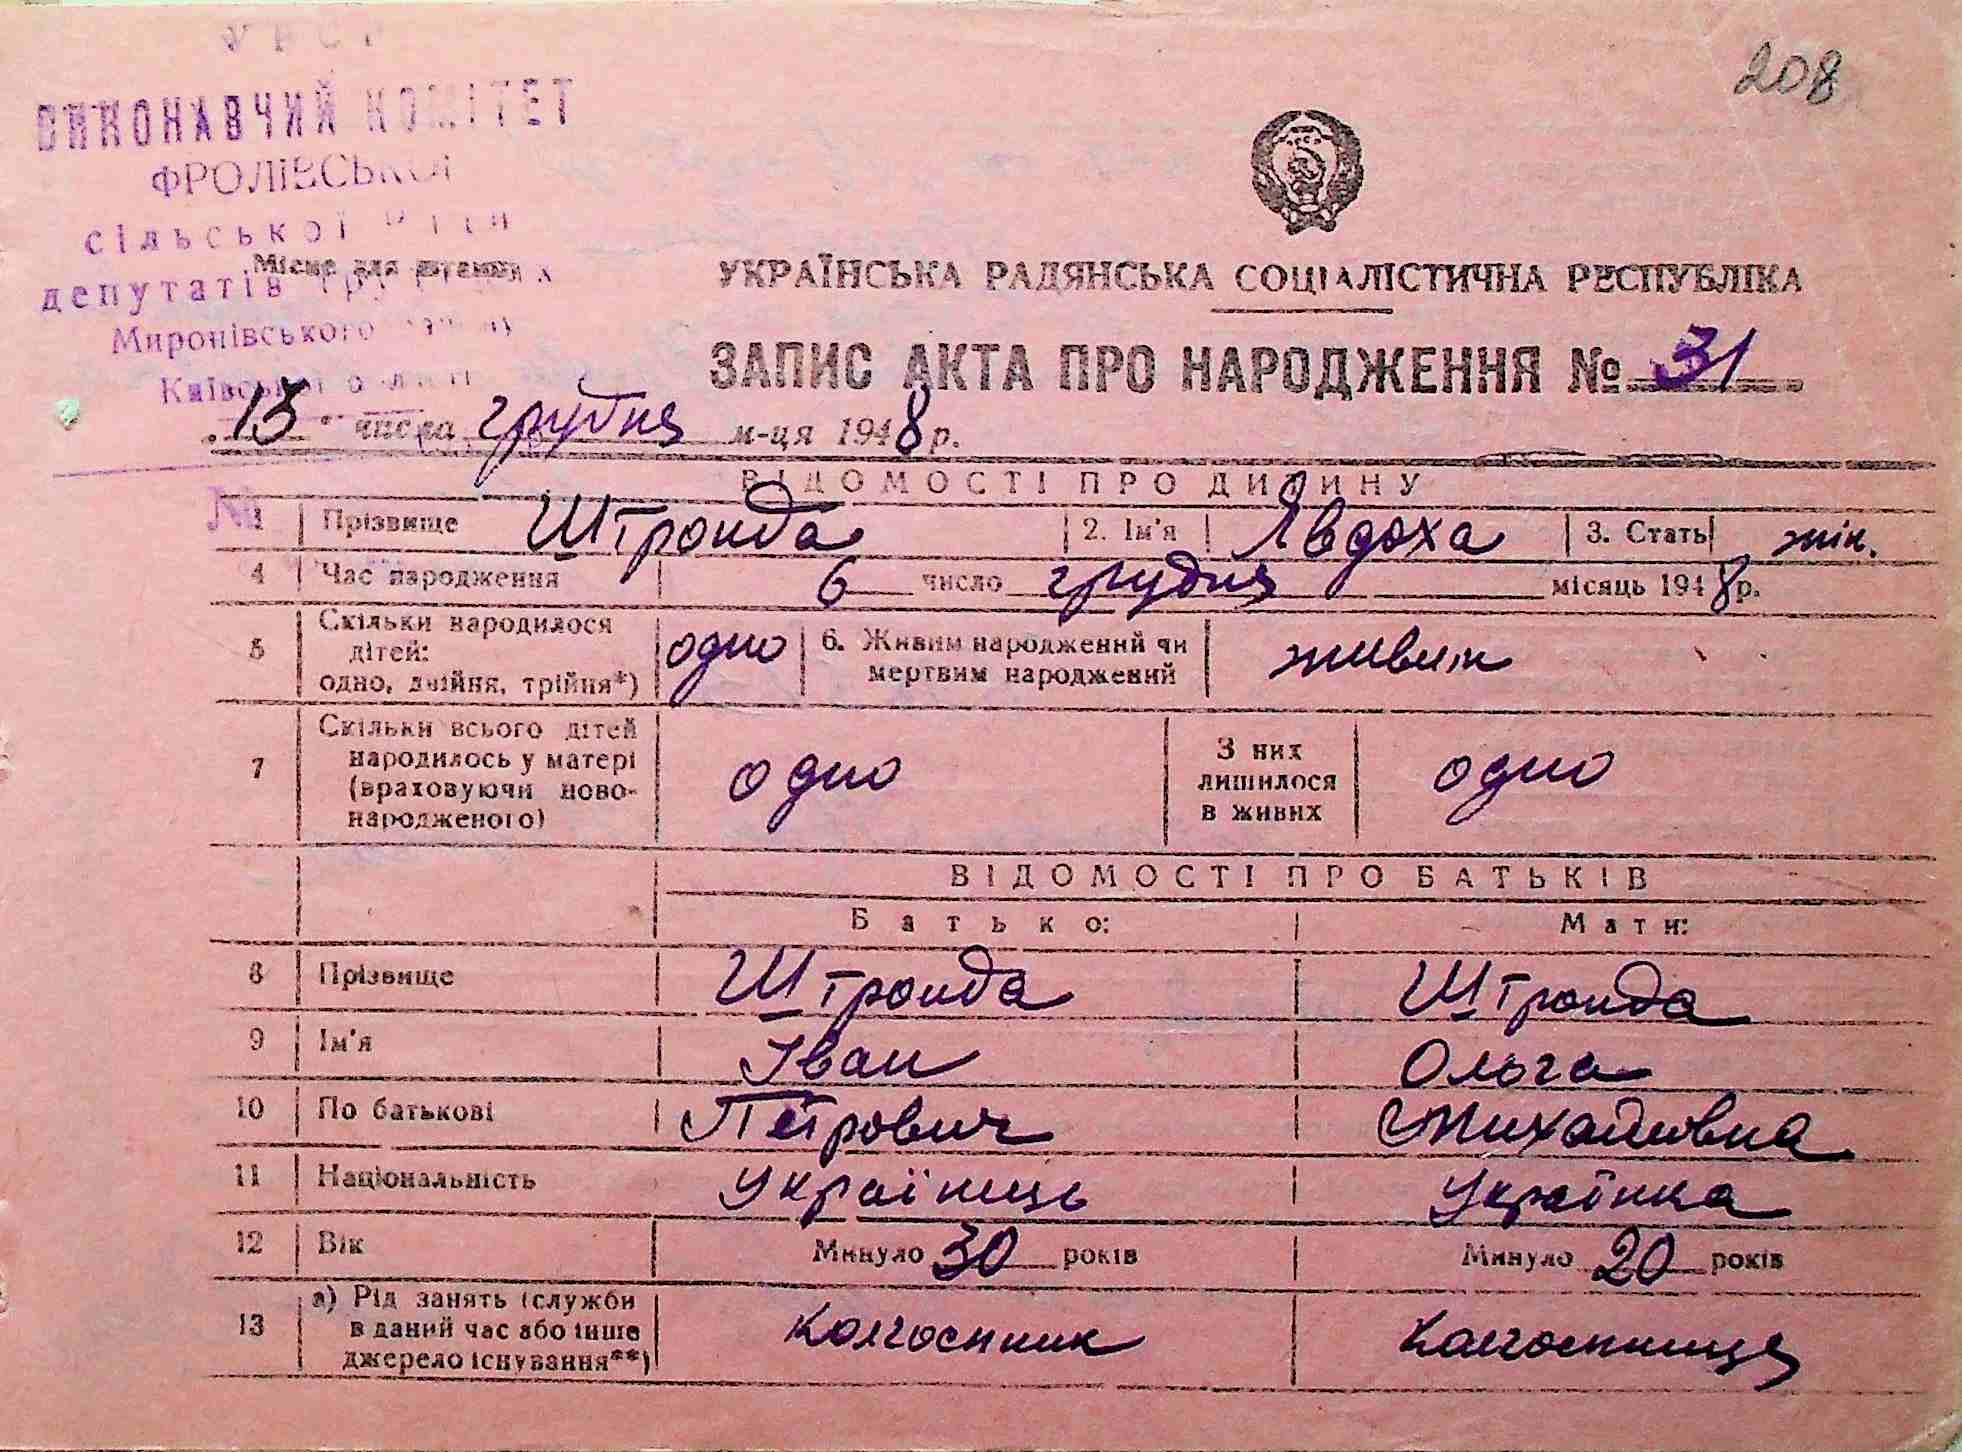 208
УРСР
ВИКОНАВЧИЙ КОМІТЕТ
ФРОЛІВСЬКОЇ
сільської Ради
депутатів
Місце для штампа
Миронівського району
Київської області
УКРАЇНСЬКА РАДЯНСЬКА СОЦІАЛІСТИЧНА РЕСПУБЛІКА
ЗАПИС АКТА ПРО НАРОДЖЕННЯ № 31
"15" числа грудня м-ця 1948 р.
ВІДОМОСТІ ПРО ДИТИНУ
№
1 Прізвище Штронда 2. Ім'я Явдоха 3. Стать жін.
4 Час народження 6 число грудня місяць 1948 р.
5 Скільки народилося дітей: одно, двійня, трійня*) одно 6. Живим народжений чи мертвим народжений живим
7 Скільки всього дітей народилось у матері (враховуючи новонародженого) одно З них лишилося в живих одно
ВІДОМОСТІ ПРО БАТЬКІВ
Батько: Мати:
8 Прізвище Штронда Штронда
9 Ім'я Іван Ольга
10 По батькові Петрович Михайловна
11 Національність Українець Українка
12 Вік Минуло 30 років Минуло 20 років
13 а) Рід занять (служби в даний час або інше джерело існування**) колгоспник колгоспниця